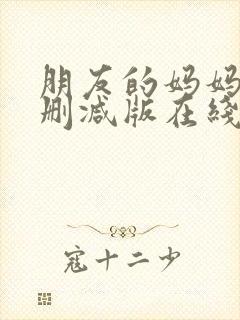 朋友的妈妈
删减版在线
寇十二少